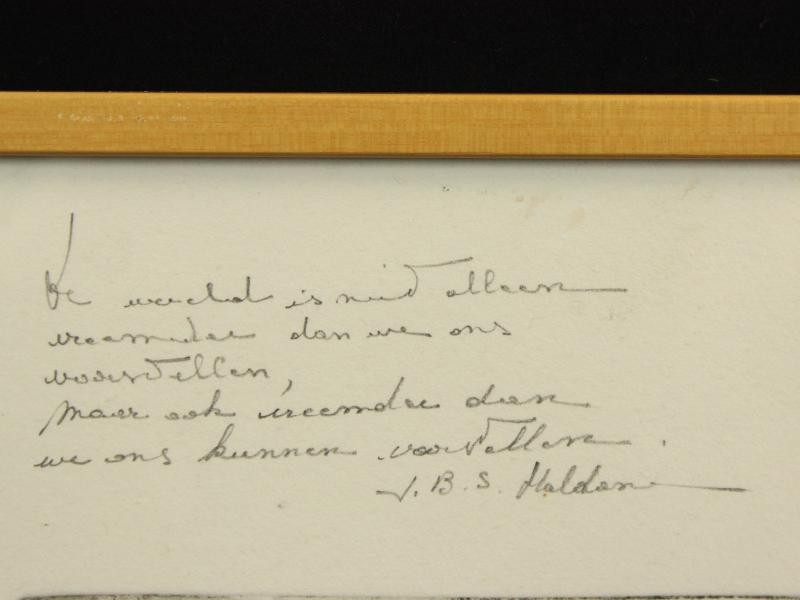 De wereld is niet alleen
vreemder dan we ons
voorstellen,
maar ook vreemder dan
we ons kunnen voorstellen.
J. B. S. Haldane